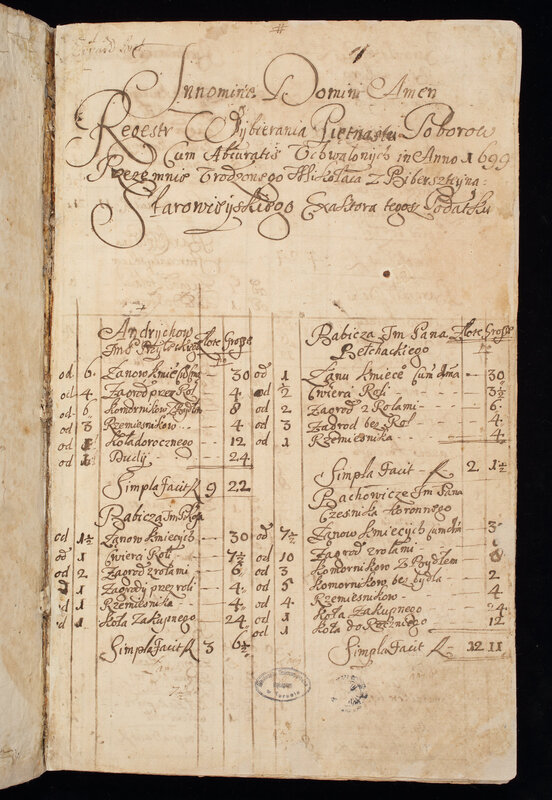 In nomine Domini Amen
Regestr Wybierania Piętnastu Poborow
Cum Abiuratis Uchwalonych in Anno 1699
Przezemnie Urodzonego Mikołaia Z Biberszteyna
Starowieyskiego Exaktora tegosz Podatku
Andrychow
Złote Grosze
od 6 Łanow kmiec 30
od 4 Zagrod przez Rol 4
od 6 Komornikow 8
od 3 Rzemiesnikow 4
od 1 Koła dorocznego 12
od 1 Dudy 24
Simpla facit fl 9 22
Babicza Jm
od 1½ Łanow kmiecych 30
od 1 Cwierci Roli 7½
od 2 Zagrod z rolami 6
1 Zagrody przez roli 4
od 1 Rzemiesnika 4
od 1 Koła Zakupnego 24
Simpla facit fl 3 6½
Babicza Jm Pana
Złote Grosze
od 1 Łanu kmiece 30
od ½ Cwierci Roli 3½
od 2 Zagrod z Rolami 6
od 3 Zagrod bez Rol 4
od 1 Rzemiesnika 4
Simpla facit fl 2 1½
Bachowicze Jm Pana
Czesnika Koronnego
od 7½ Łanow kmiecych
od 10 Zagrod z rolami
od 3 Komornikow z Bydłem 8
od 5 Komornikow bez bydła 2
od 4 Rzemiesnikow 4
od 1 Koła Zakupnego 24
od 1 Koła dorocznego 12
Simpla facit fl 12 11